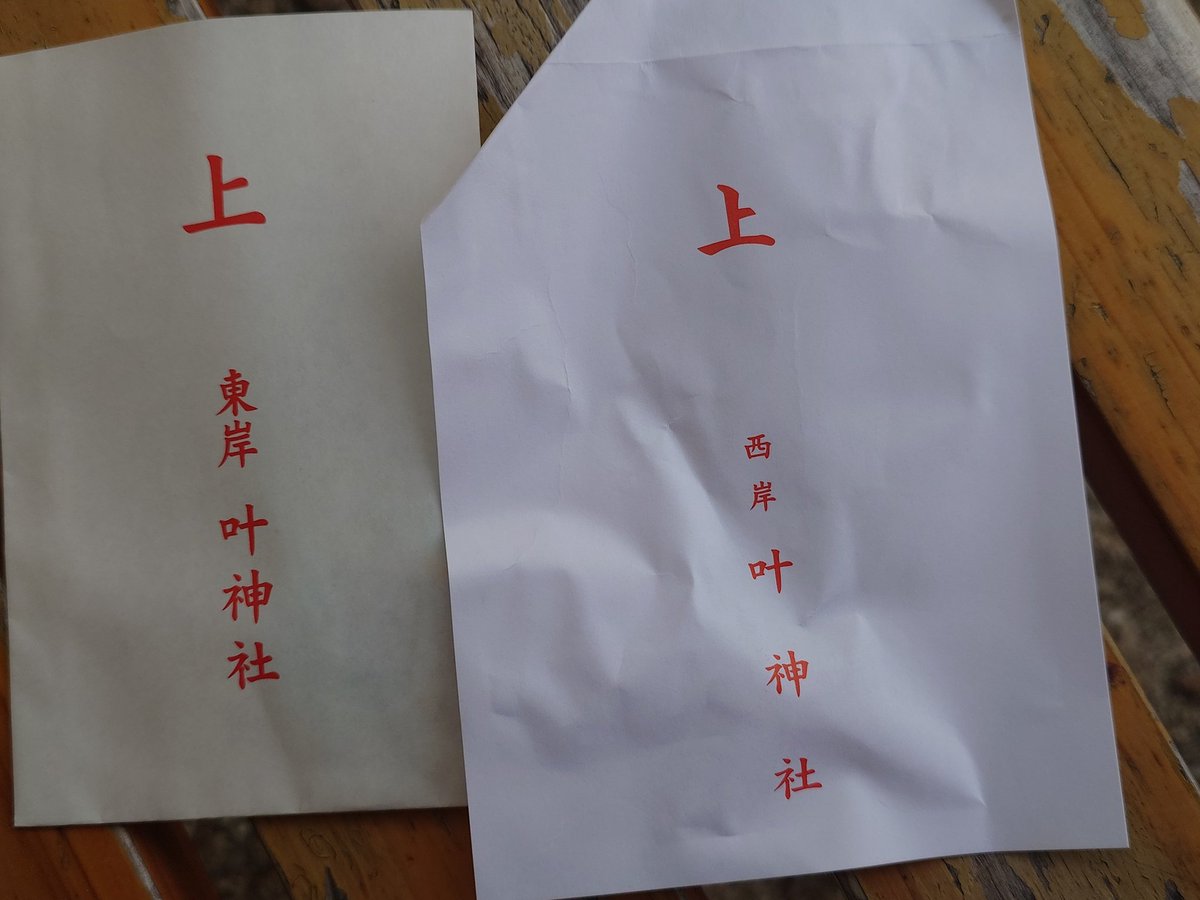 上
東岸 叶神社
上
西岸 叶神社